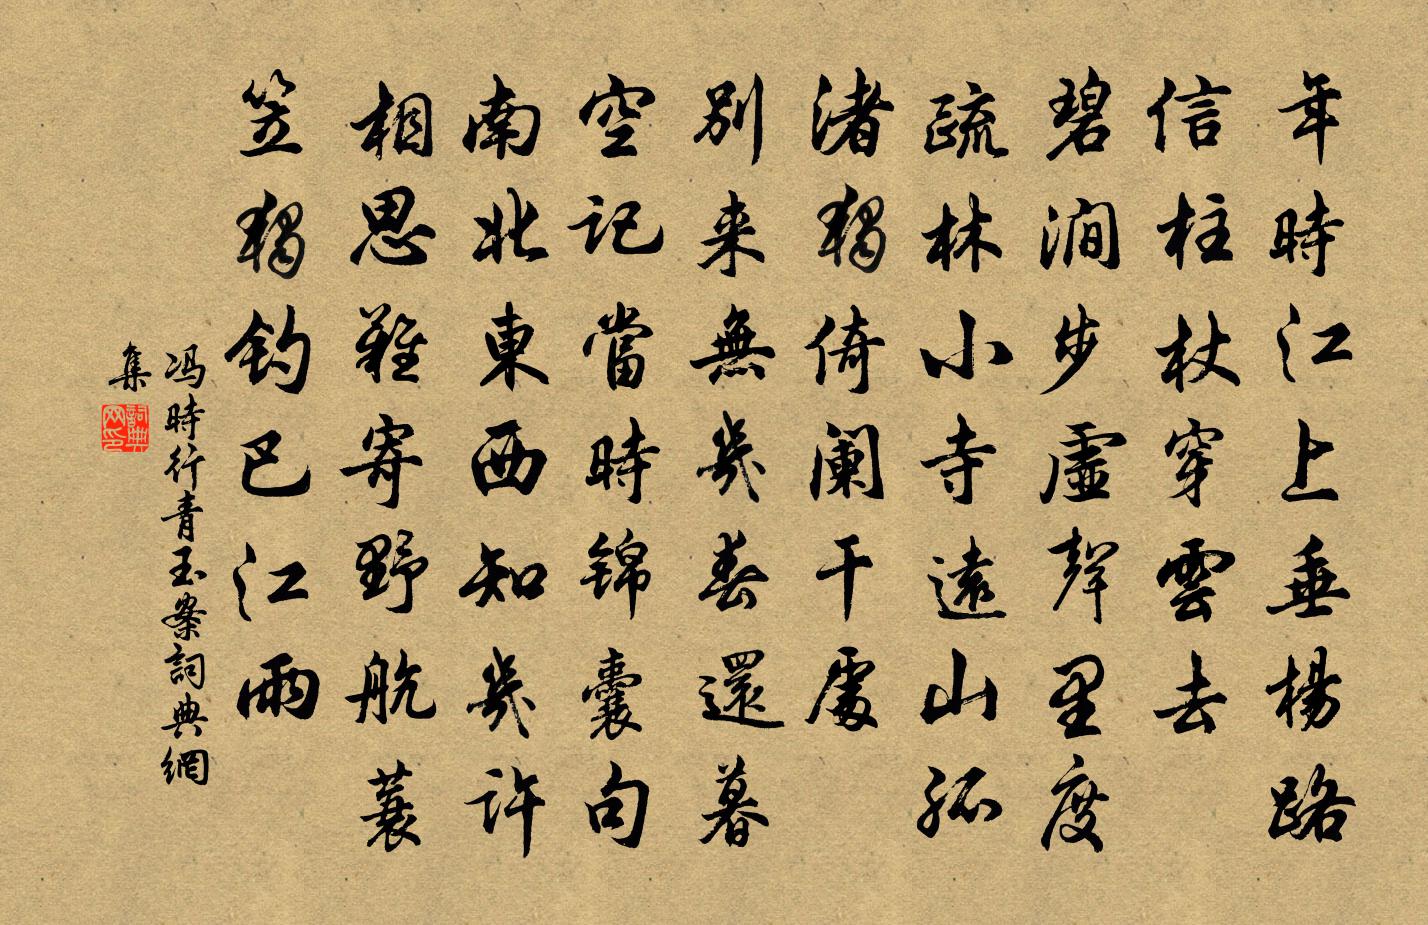 年時江上垂楊路
信柱杖穿雲去
碧澗步虛聲里度
疏林小寺遠山孤
渚獨倚闌干處
別来無幾春還暮
空記當時錦囊句
南北東西知幾許
相思難寄野航蓑
笠獨釣巴江雨
冯時行青玉案詞典網
集
詞典网印